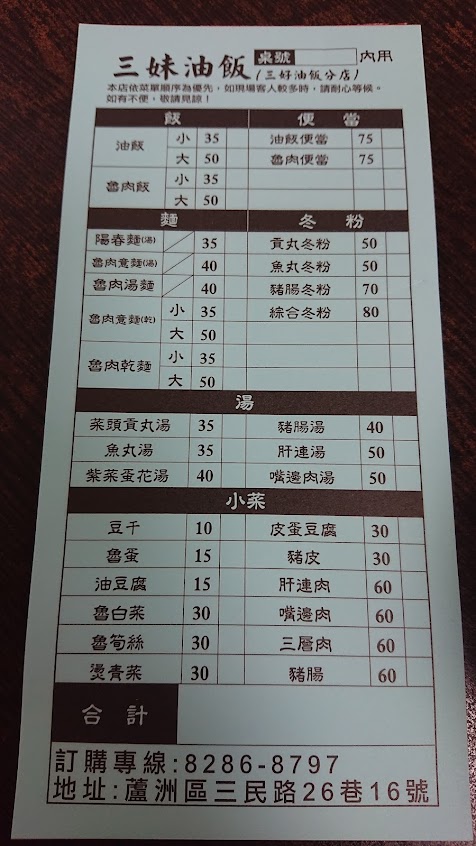 三妹油飯 桌號 內用
(三好油飯分店)
本店依菜單順序為優先，如現場客人較多時，請耐心等候。
如有不便，敬請見諒！
飯 便當
油飯 小 35 油飯便當 75
大 50 魯肉便當 75
魯肉飯 小 35
大 50
麵 冬粉
陽春麵(湯) 35 貢丸冬粉 50
魯肉意麵(湯) 40 魚丸冬粉 50
魯肉湯麵 40 豬腸冬粉 70
魯肉意麵(乾) 小 35 綜合冬粉 80
大 50
魯肉乾麵 小 35
大 50
湯
菜頭貢丸湯 35 豬腸湯 40
魚丸湯 35 肝連湯 50
紫菜蛋花湯 40 嘴邊肉湯 50
小菜
豆干 10 皮蛋豆腐 30
魯蛋 15 豬皮 30
油豆腐 15 肝連肉 60
魯白菜 30 嘴邊肉 60
魯筍絲 30 三層肉 60
燙青菜 30 豬腸 60
合計
訂購專線:8286-8797
地址:蘆洲區三民路26巷16號